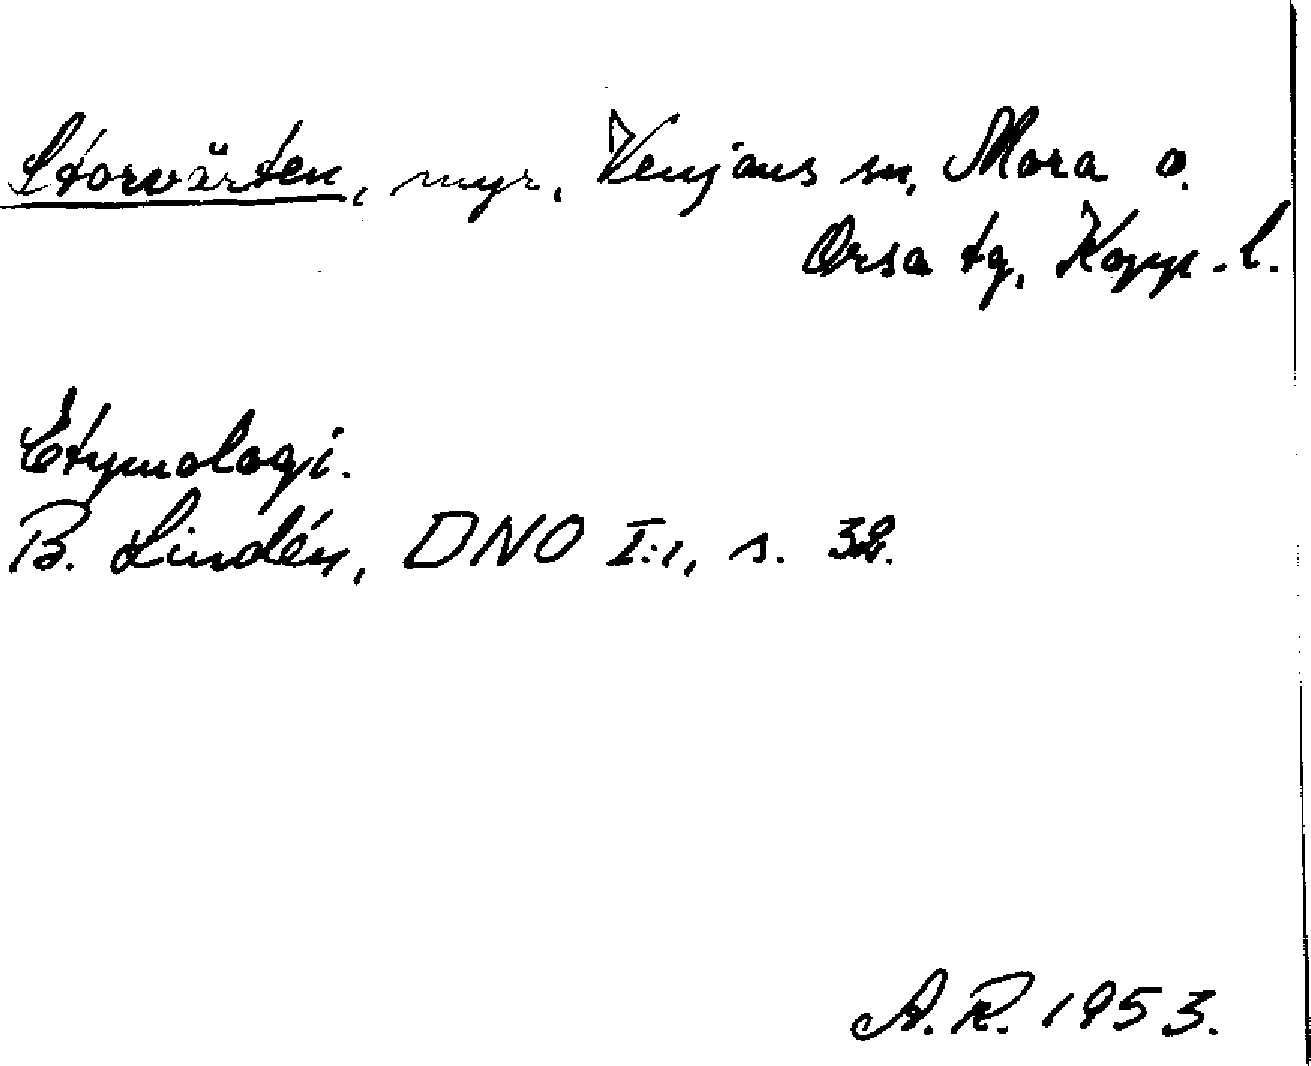 Storvärten, myr, Venjans sn, Mora o.
Orsa tg, Kopp. l.
Etymologi.
B. Lindén, DNO I:1, s. 32.
A. R. 1953.